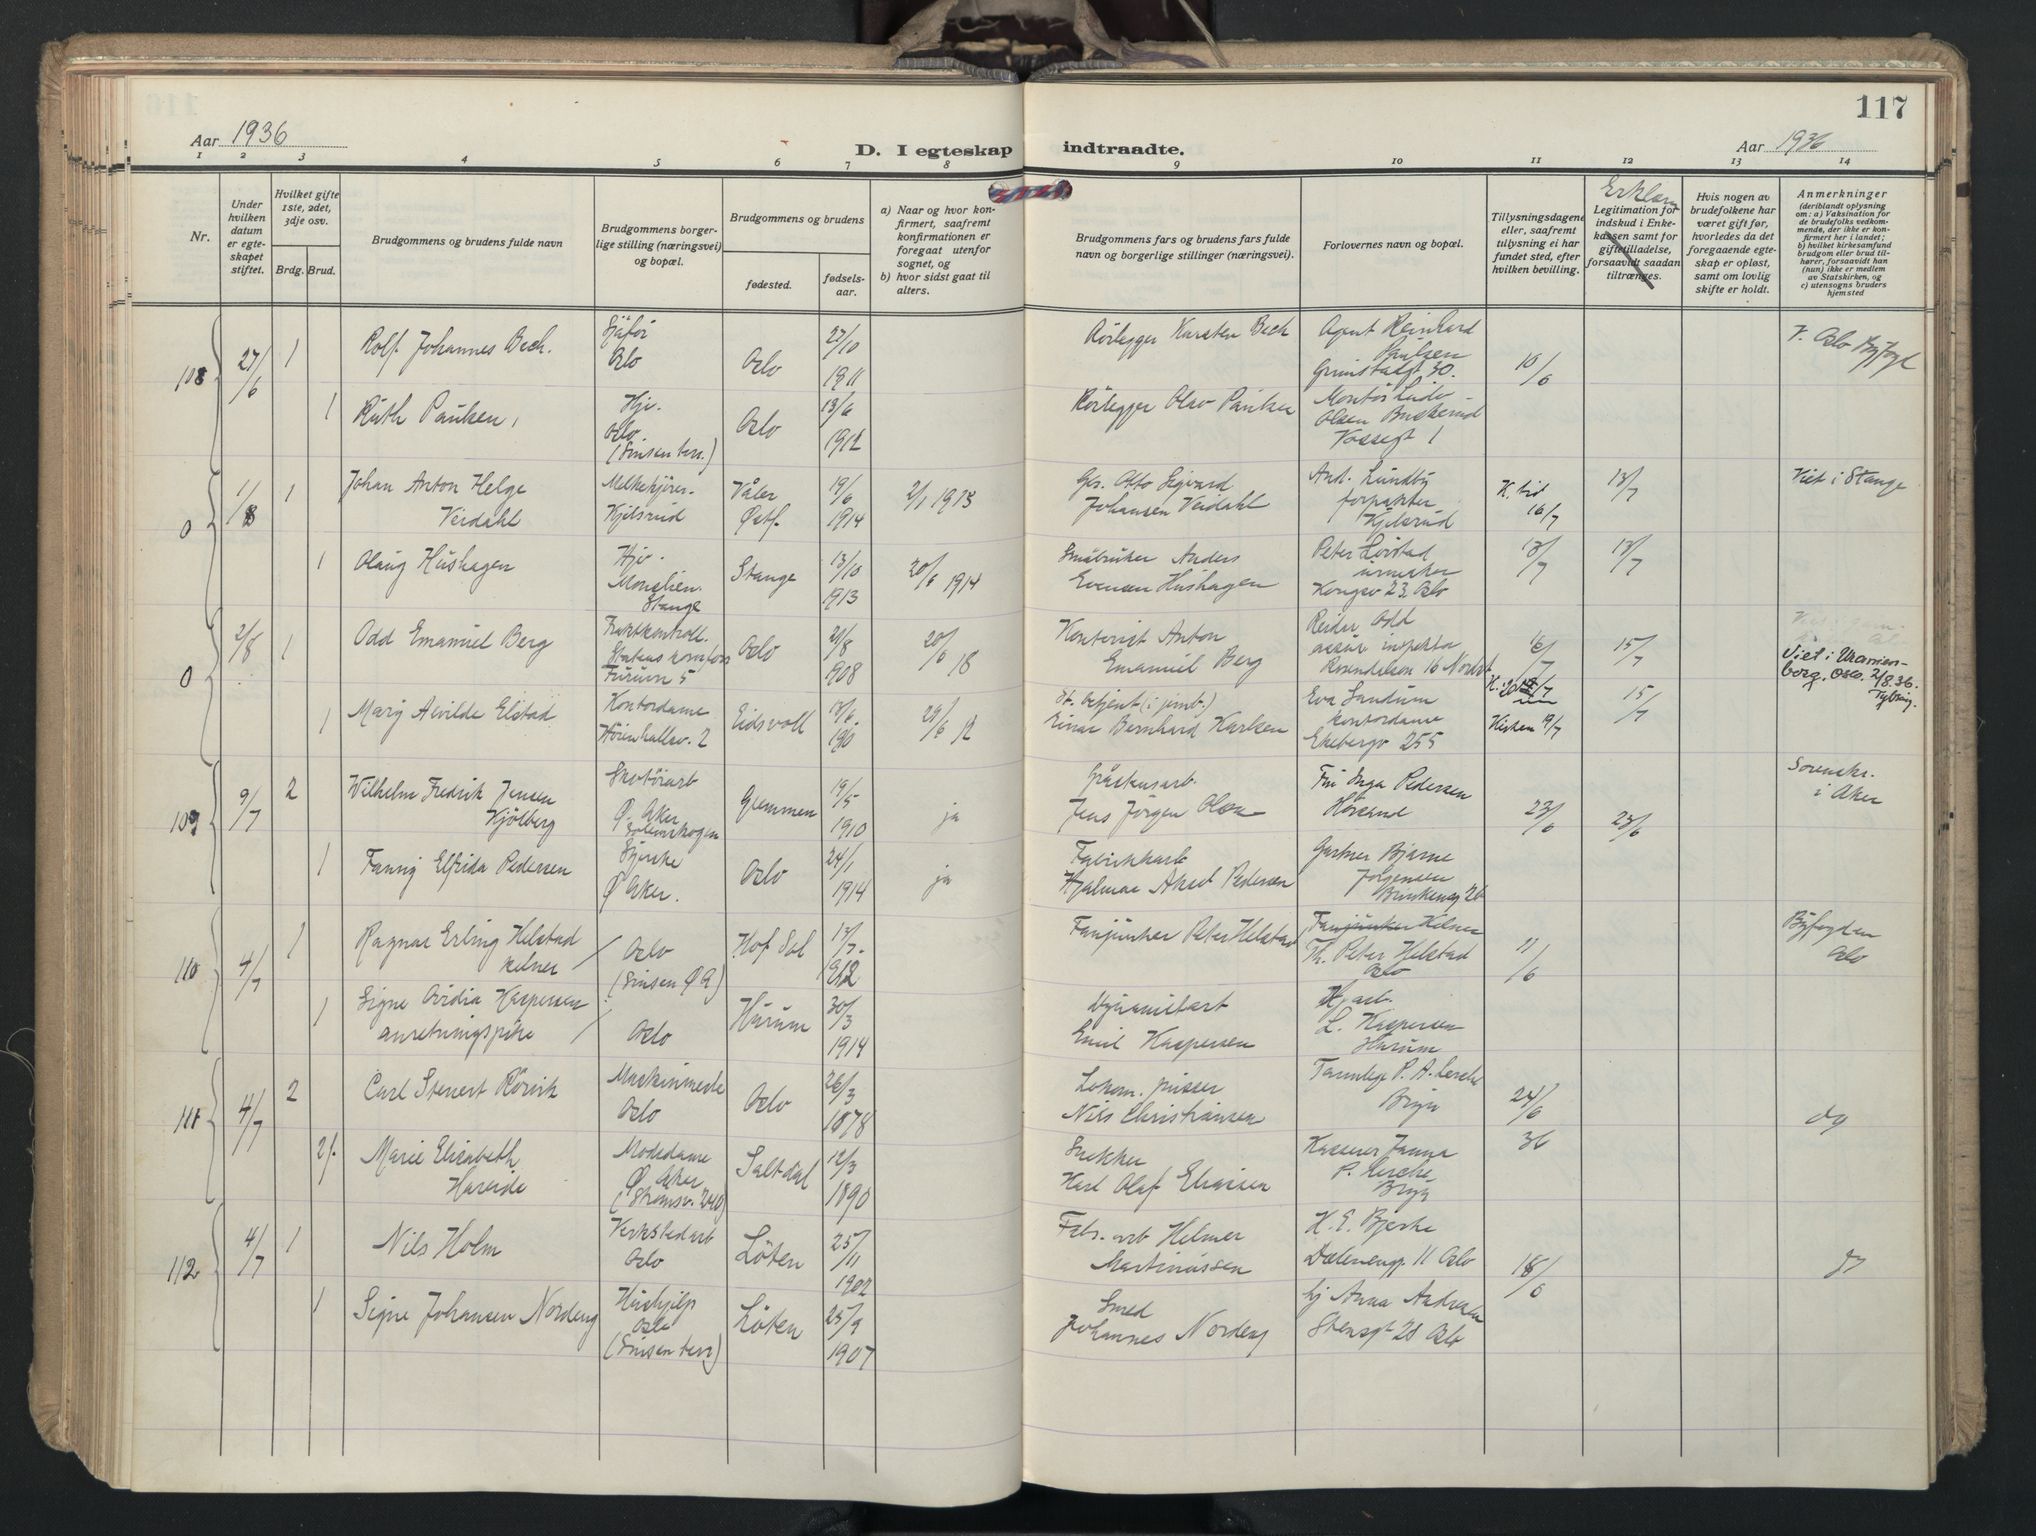 117
Aar 1936
D. I egteskap indtraadte.
Aar 1936
1 2 3 4 5 6 7 8 9 10 11 12 13 14
Nr.
Under hvilken datum er egteskapet stiftet.
Hvilket gifte 1ste, 2det, 3dje osv.
Brdg. Brud.
Brudgommens og brudens fulde navn
Brudgommens borgerlige stilling (næringsvei) og bopæl.
Brudgommens og brudens
fødested.
fødselsaar.
a) Naar og hvor konfirmert, saafremt konfirmationen er foregaat utenfor sognet, og
b) hvor sidst gaat til alters.
Brudgommens fars og brudens fars fulde navn og borgerlige stillinger (næringsvei).
Forlovernes navn og bopæl.
Tillysningsdagene eller, saafremt tillysning ei har fundet sted, efter hvilken bevilling.
Legitimation for indskud i Enkekassen samt for giftetilladelse, forsaavidt saadan tiltrænges.
Hvis nogen av brudefolkene har været gift før, hvorledes da det foregaaende egteskap er opløst, samt om lovlig skifte er holdt.
Anmerkninger
(deriblandt oplysning om: a) Vaksination for de brudefolks vedkommende, der ikke er konfirmert her i landet;
b) hvilket kirkesamfund brudgom eller brud tilhører, forsaavidt han (hun) ikke er medlem av Statskirken, og
c) utensogns bruders hjemsted
108 27/6 1 Rolf Johannes Bech. Sjåfør Oslo Oslo 22/10 1911 Rørlegger Karsten Bech Agent Reinhard Paulsen Grimstadgt 30. 10/6 Oslo Byfogd
1 Ruth Paulsen, Hjv. Oslo (Sinsen terr.) Oslo 13/6 1912 Rørlegger Olav Paulsen Olsen Buskerud Vossegt 1
0 1/8 1 Johan Anton Helge Veidahl Melkekjører Kjelsrud Våler Østf. 19/6 1914 2/1 1913 Otto Sigvard Johansen Veidahl And. Lundby forpakter Kjelsrud 16/7 13/7 Viet i Stange
1 Olaug Hushagen Hjv. Stange Stange 13/10 1913 20/6 1914 Småbruker Anders Evensen Hushagen Peter Lovstad urmaker Kongsv 23. Oslo 13/7 13/7
0 2/8 1 Odd Emanuel Berg Furum 5 Oslo 21/8 908 20/6 18 Kontorist Anton Emanuel Berg Reidar Odd inspektør 16/7 15/7 Viet i Uranienberg, Oslo 2/8.36.
1 Mary Alvilde Elstad Kontordame Eidsvoll 29/6 12 Einar Bernhard Karlsen Eva Sundum kontordame Ekebergv 255 Kirken 19/7 15/7
109 9/7 2 Wilhelm Fredrik Jensen Kjølberg Skotøiarb Ø. Aker Solemskogen Glemmen 19/5 1910 ja Jens Jørgen Olsen Fru Inga Pedersen 23/6 23/6 Sorenskr. i Aker
1 Fanny Elfrida Pedersen Bjerke Ø Aker. Oslo 24/1 1914 ja Fabrikkarb Hjalmar Aksel Pedersen Gartner Bjarne Jørgensen
110 4/7 1 Ragnar Erling Helstad kelner Oslo (Sinsen Ø A) Hof Sol 13/7 1912 Fanjunker Peter Helstad Fanjunker Kelner Th. Peter Helstad Oslo 11/6 Byfogden Oslo
1 Signe Ovidia Kaspersen anretningspike Oslo Hurum 30/3 1914 Dynamitarb Emil Kaspersen Hj arb. L. Kaspersen Hurum
111 4/7 2 Carl Stenert Rørvik Oslo Oslo 26/3 1878 Lokom. pusser Nils Christiansen Tannlege P. A. Lerche Bryn 24/6 36 do
2 Marie Elisabeth Hareide Modedame Ø Aker (Strømsv. 240) Saltdal 12/3 1890 Snekker Karl Olaf Eliassen Kasserer Janna P. Lerche Bryn
112 4/7 1 Nils Holm Verkstedarb Oslo Løten 25/11 1902 Fabr. arb Helmer Martinussen H. E. Bjerke Dælenengt 11 Oslo 18/6 do
1 Signe Johansen Nordeng Hushjelp Oslo (Sinsen terr) Løten 25/9 1907 Smed Johannes Nordeng hj Anna Andresen Stensgt 28 Oslo